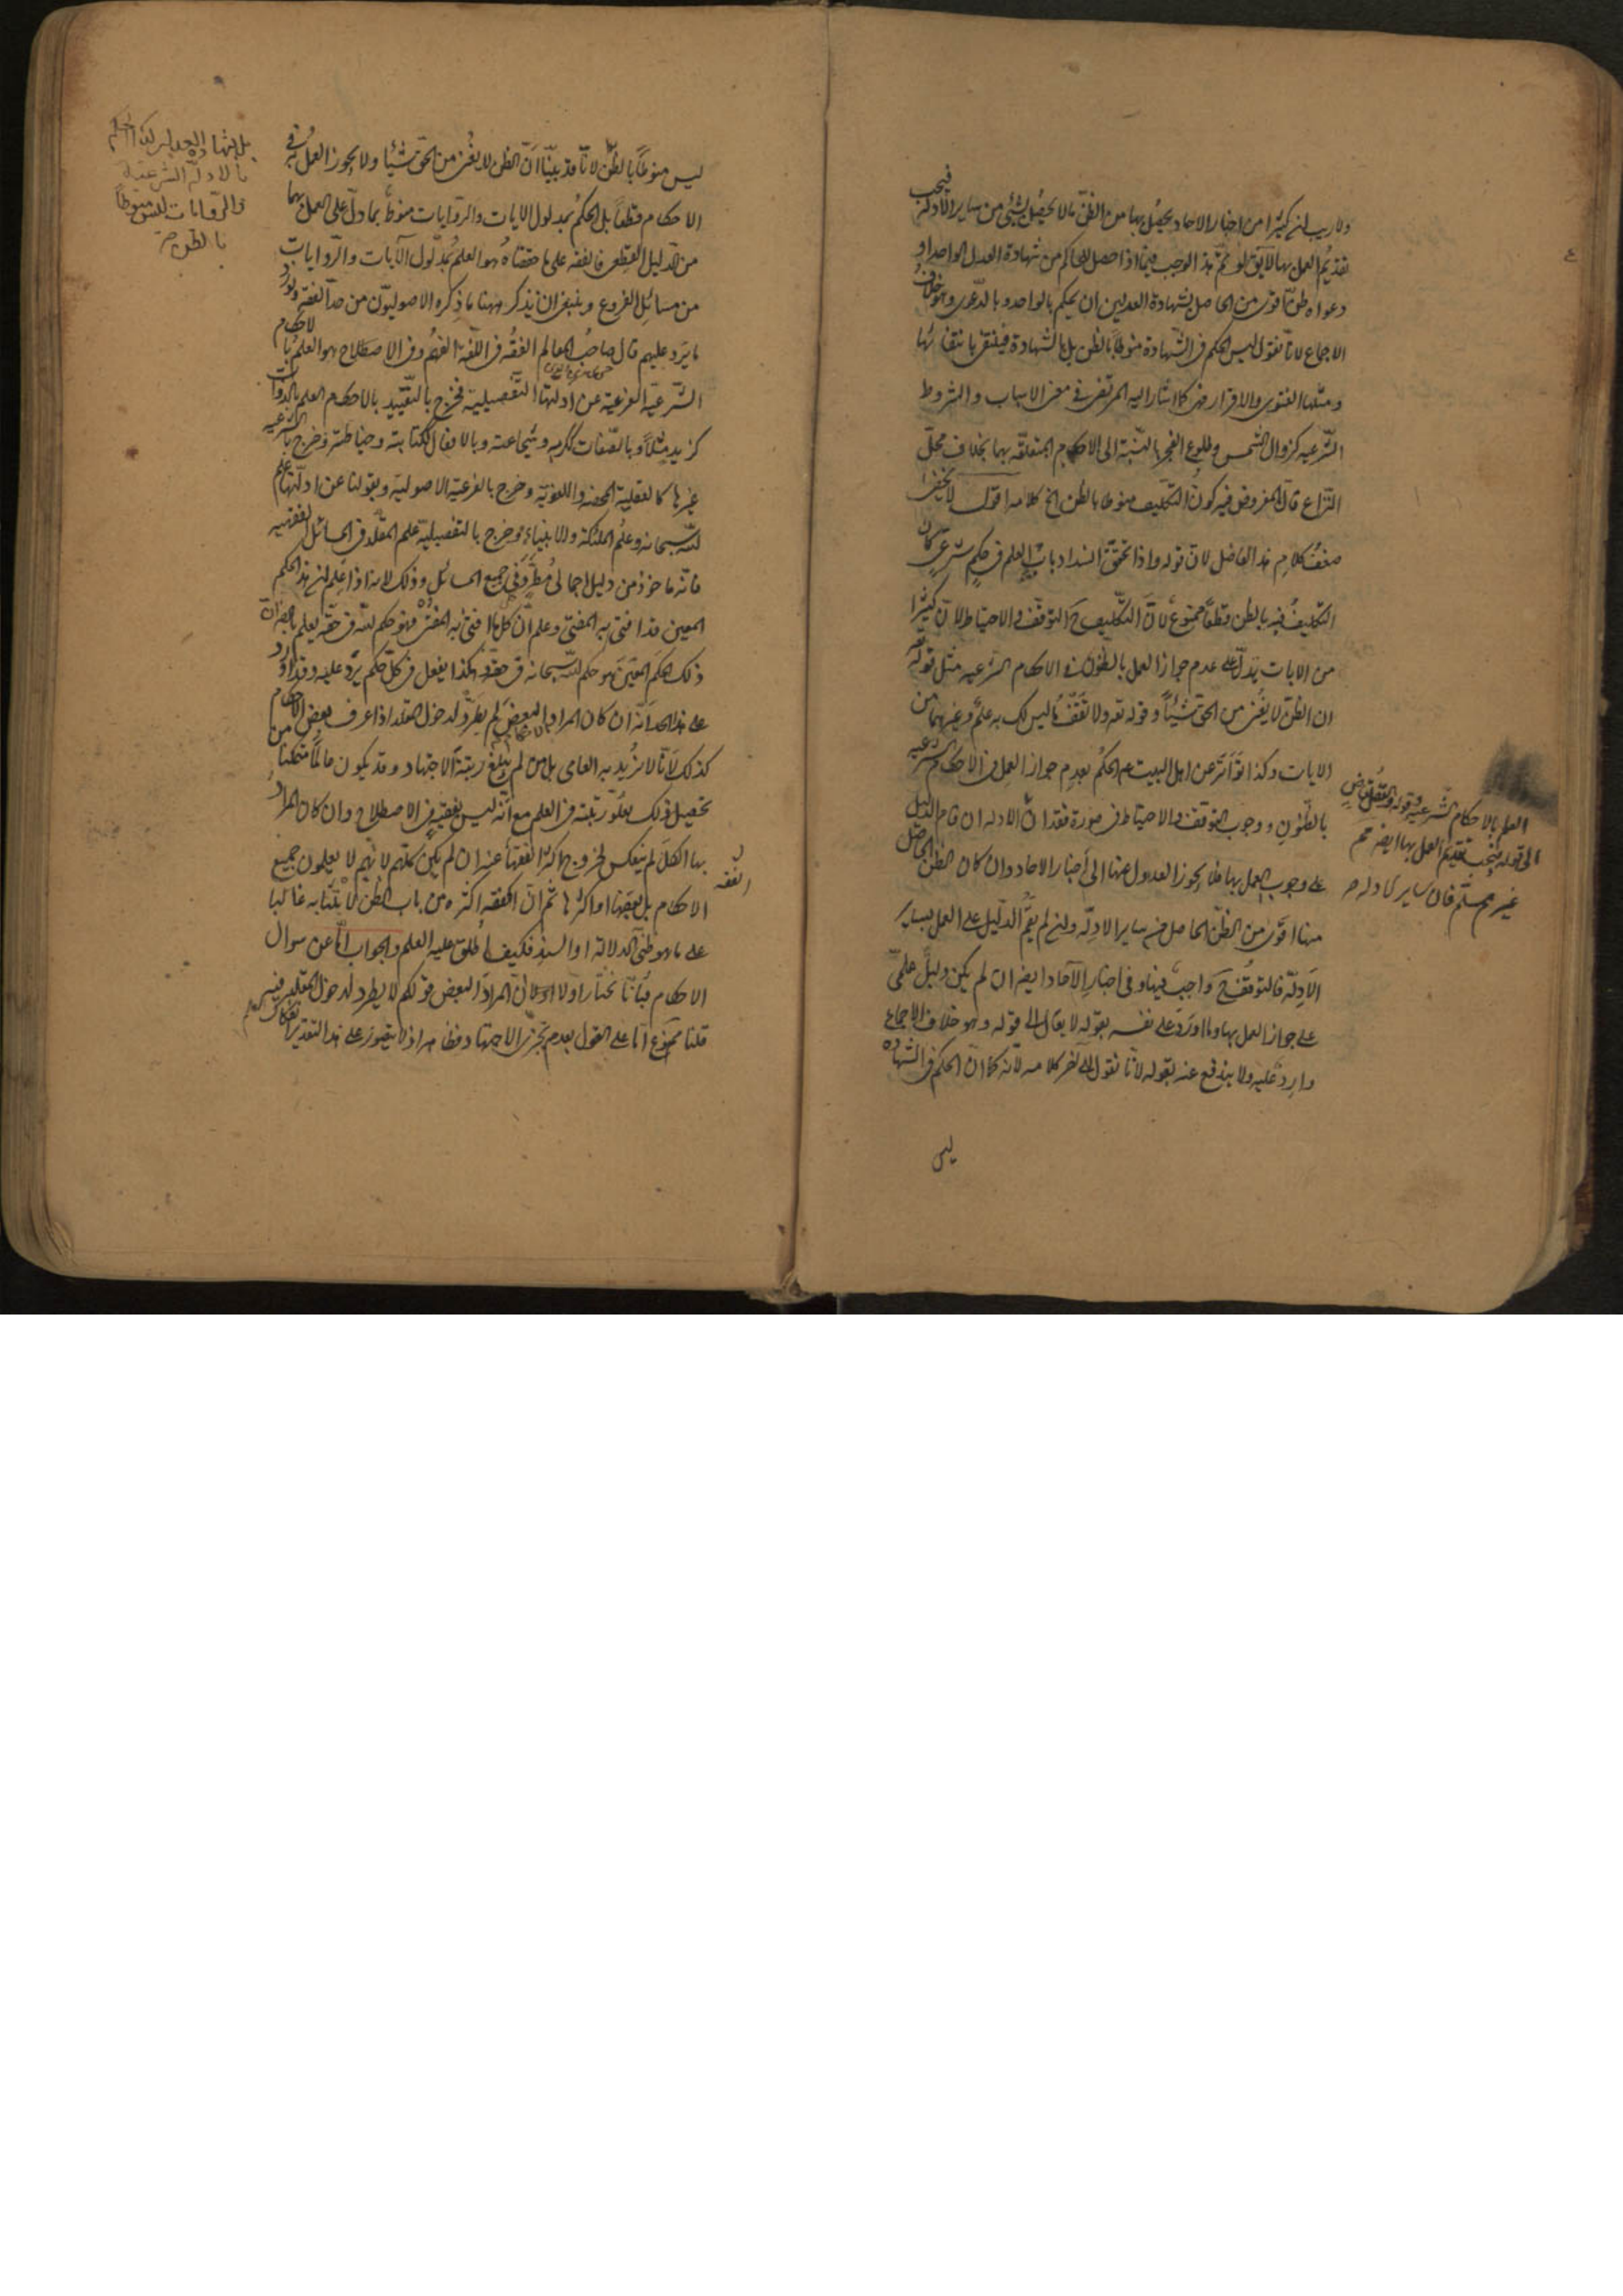 ولا ريب ان كثيرا من اخبار الاحاد يحصل بها من الظن ما لا يحصل بشئ من ساير الادلة فيجب
تقديم العمل بها لا يق لو تم هذا لوجب فيما اذا حصل للحاكم من شهادة العدل الواحد او
دعواه ظن اقوى من الحاصل بشهادة العدلين ان يحكم بالواحد وبالدعوى وهو خلاف
الاجماع لانا نقول ليس الحكم في الشهادة منوطا بالظن بل بالشهادة فينتفى بانتفائها
ومثلها الفتوى والاقرار فهى كما اشار اليه المرتضى في معنى الاسباب والشروط
الشرعيه كزوال الشمس وطلوع الفجر بالنسبة الى الاحكام المتعلقه بها بخلاف محل
النزاع فان المفروض فيه كون التكليف منوطا بالظن الخ كلامه اقول لا يخفى
ضعف كلام هذا الفاضل لان قوله واذا تحقق انسداد باب العلم في حكم شرعى كان
التكليف فيه بالظن قطعا ممنوع لان التكليف ح التوقف والاحتياط لان كثيرا
من الايات يدل على عدم جواز العمل بالظنون في الاحكام الشرعيه مثل قوله تعه
ان الظن لا يغنى من الحق شيئا وقوله تعه ولا تقف ما ليس لك به علم وغيرهما من
الايات وكذا تواتر عن اهل البيت عم الحكم بعدم جواز العمل في الاحكام الشرعيه
بالظنون ووجوب التوقف والاحتياط في صورة فقدان الادله ان قام الدليل
على وجوب العمل بها فلا يجوز العدول عنها الى أخبار الاحاد وان كان الظن الحاصل
منها اقوى من الظن الحاصل من ساير الادله وان لم يقم الدليل على العمل بساير
الادلة فالتوقف ح واجب فيها وفى اخبار الآحاد ايضه ان لم يكن دليل علمى
على جواز العمل بها وما اورد على نفسه بقوله لا يقال الى قوله وهو خلاف الاجماع
وارد عليه ولا يندفع عنه بقوله لانا نقول الى آخر كلامه لانه كما ان الحكم في الشهاده
ليس
العلم بالاحكام الشرعيه وقوله
الى قوله فيجب تقديم العمل بها ايضه
غير مسلم فان ساير الادله
ليس منوطا بالظن لانا قد بينا ان الظن لا يغنى من الحق شيئا ولا يجوز العمل به في
الاحكام قطعا بل الحكم بمدلول الايات والروايات منوط بما دل على العمل بهما
من الدليل القطعى فالفقه على ما حققناه هو العلم بمدلول الآيات والروايات
من مسائل الفروع وينبغى ان نذكر ههنا ما ذكره الاصوليون من حد الفقه ونورد
ما يرد عليهم قال صاحب المعالم الفقه في اللغة الفهم وفى الاصطلاح هو العلم بالاحكام
الشرعية الفرعية عن ادلتها التفصيلية فخرج بالتقييد بالاحكام العلم بالذوات
كزيد مثلا وبالصفات ككرمه وشجاعته وبالافعال ككتابته وخياطته وخرج بالشرعيه
غيرها كالعقلية المحضه واللغويه وخرج بالفرعية الاصوليه وبقولنا عن ادلتها علم
الله سبحانه وعلم الملئكة والانبياء وخرج بالتفصيلية علم المقلد في المسائل الفقهيه
فانه ماخوذ من دليل اجمالى مطرد في جميع المسائل وذلك لانه اذا علم ان هذا الحكم
المعين قد افتى به المفتى وعلم ان كل ما افتى به المفتى فهو حكم الله في حقه يعلم بالضرورة ان
ذلك الحكم المعين هو حكم الله سبحانه في حقه وهكذا يفعل في كل حكم يرد عليه وقد اورد
على هذا الحد انه ان كان المراد البعض لم يطرد لدخول المقلد اذا عرف بعض الاحكام
كذلك لانا لا نريد به العامى بل من لم يبلغ رتبة الاجتهاد وقد يكون عالما متمكنا من
تحصيل ذلك لعلو رتبته في العلم مع انه ليس بفقيه في الاصطلاح وان كان المراد
بها الكل لم ينعكس لخروج اكثر الفقهاء عنه ان لم يكن كلهم لانهم لا يعلمون جميع
الاحكام بل بعضها او اكثرها ثم ان الفقه اكثره من باب الظن لابتنائه غالبا
على ما هو ظنى الدلالة او السند فكيف أطلق عليه العلم والجواب اما عن سوال
الاحكام فبانا نختار اولا ان المراد البعض قولكم لا يطرد لدخول المقلد فيه
قلنا ممنوع اما على القول بعدم تجزى الاجتهاد فظاهر اذ لا يتصور على هذا التقدير انفكاك العلم
الفقه
بالادلة الشرعية
والروايات ليس منوطا
بالظن